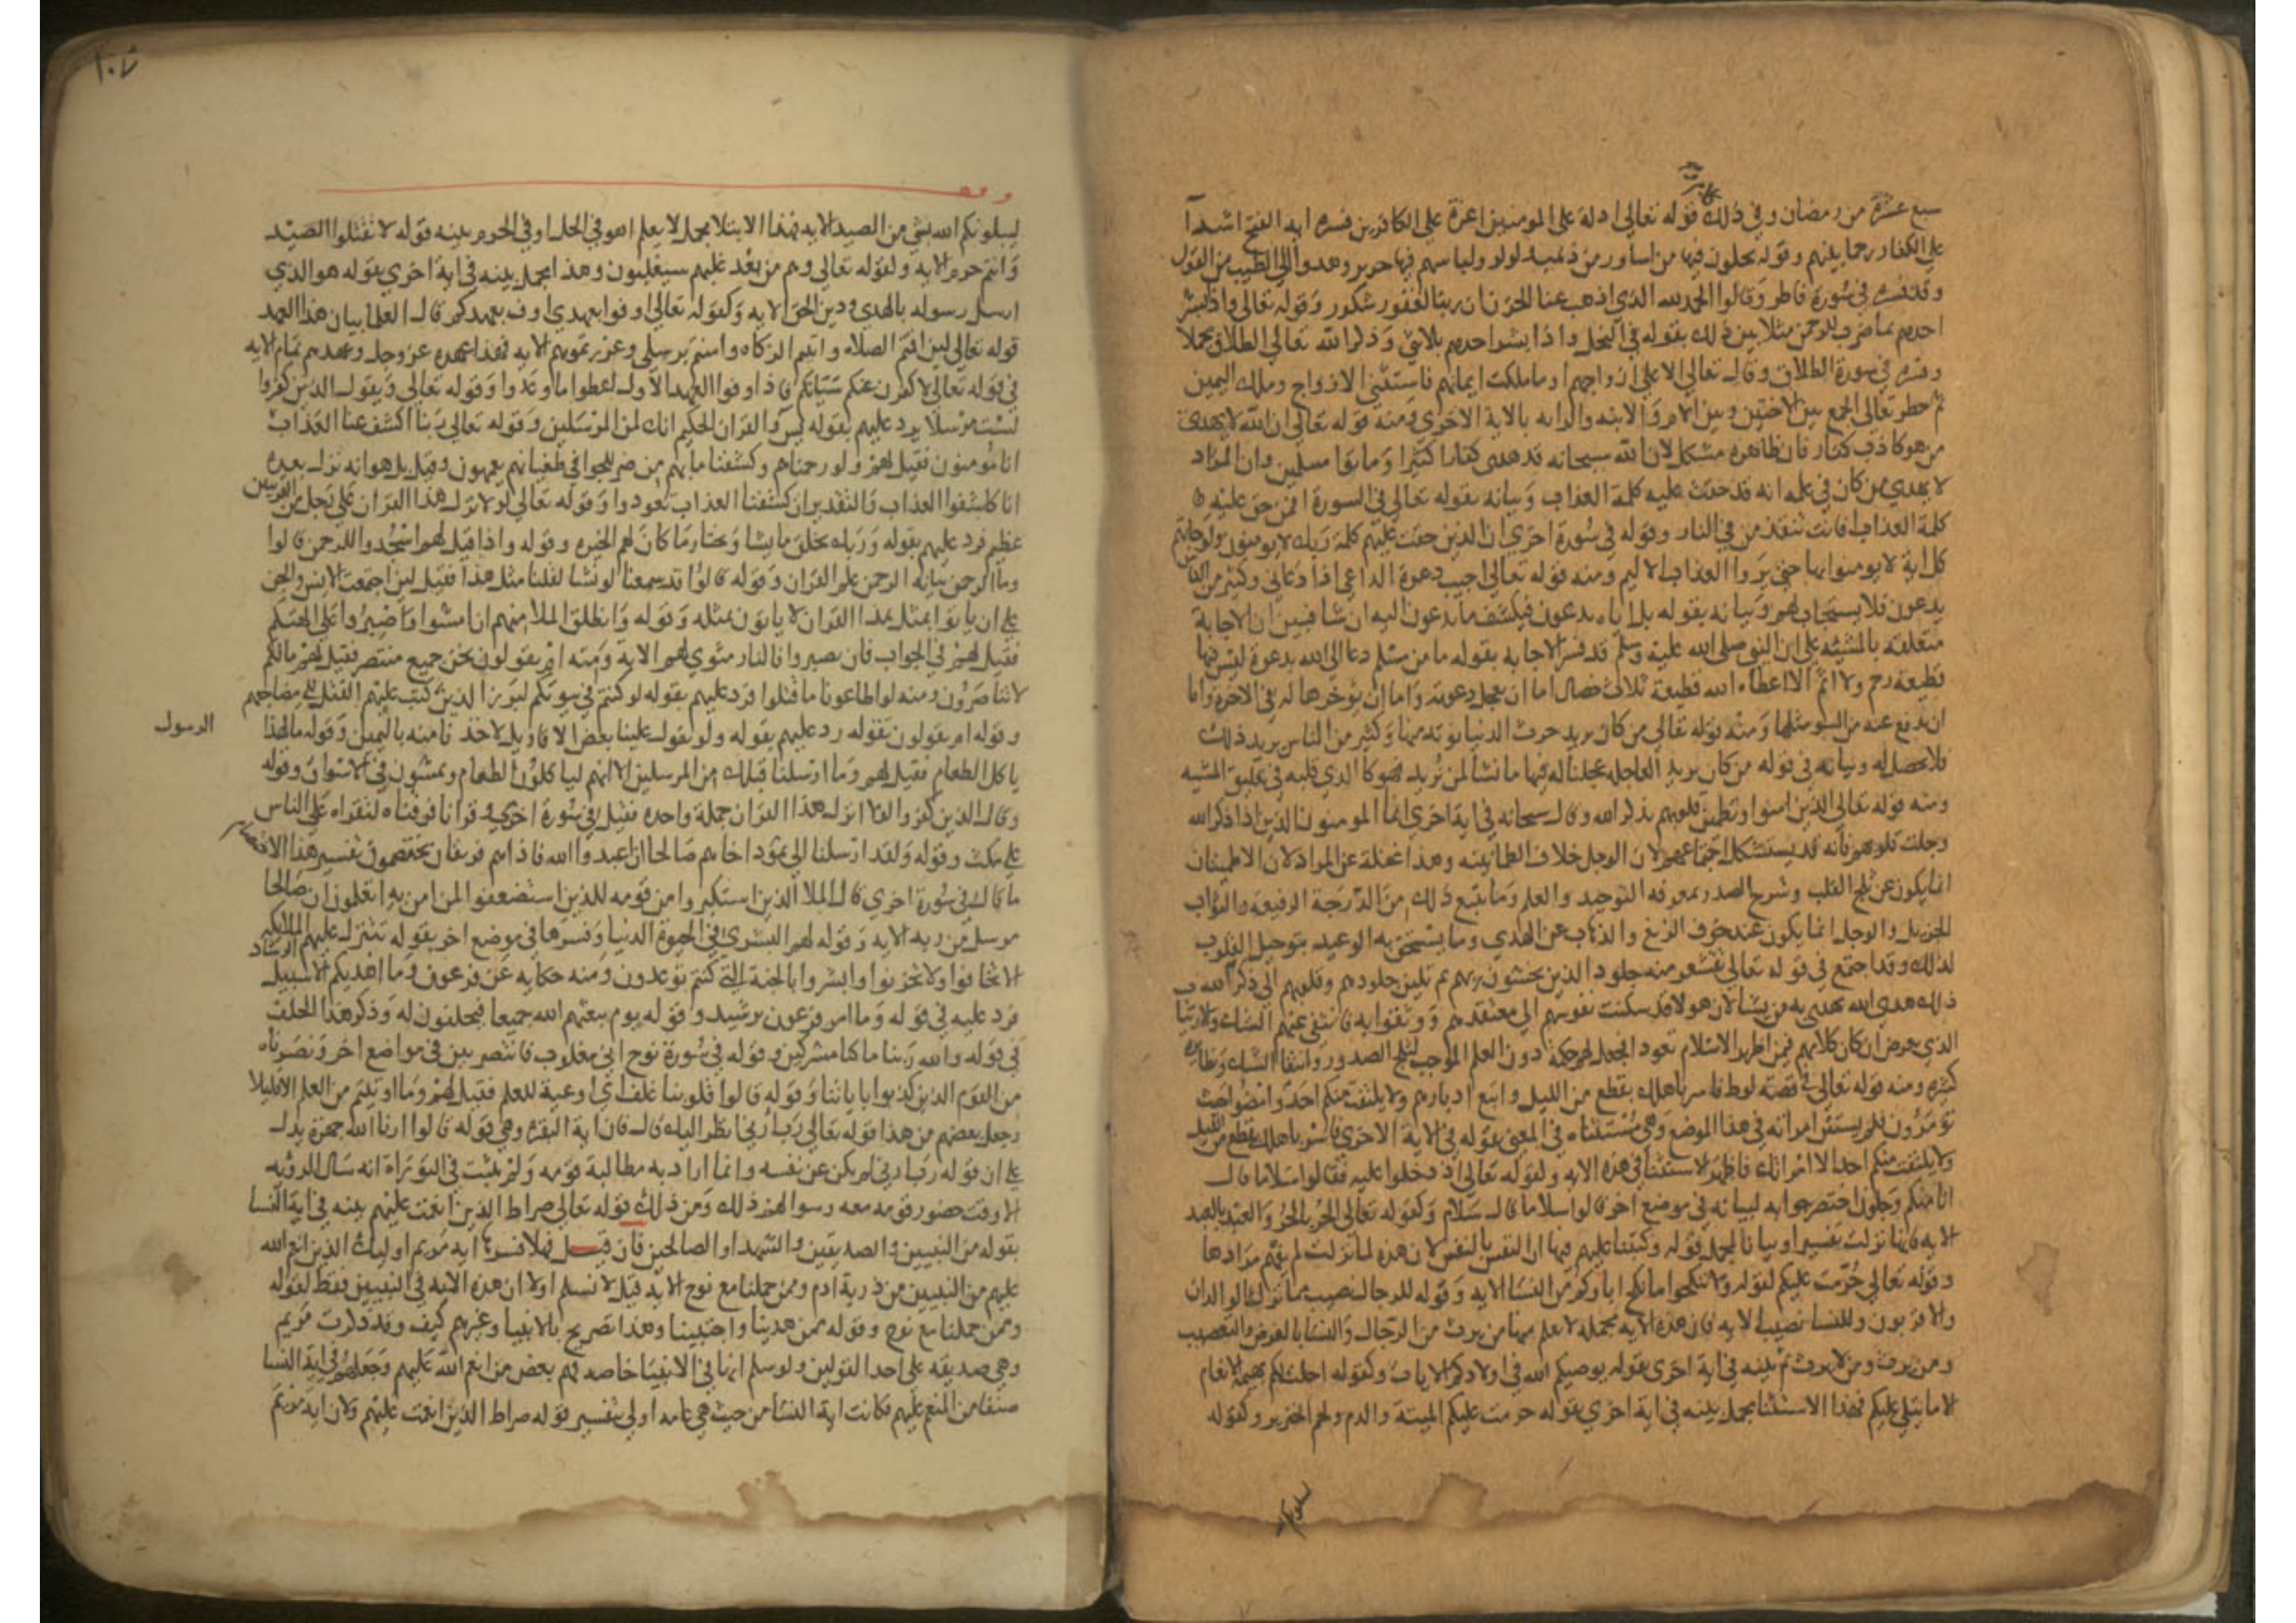 سبع عشرة من رمضان وفي ذلك قوله تعالى اذلة على المومنين اعزة على الكافرين فسره اية الفتح اشدآ
على الكفار رحما بينهم وقوله يحلون فيها من اساور من ذهب ولولو ولباسهم فيها حرير وهدوا الى الطيب من القول
وقد فسره في سورة فاطر وقالوا الحمد لله الذي اذهب عنا الحزن ان ربنا لغفور شكور وقوله تعالى واذا بشر
احدهم بما ضرب للرحمن مثلا بين ذلك بقوله في النحل واذا بشر احدهم بالانثى وذكر الله تعالى الطلاق مجملا
وفسره في سورة الطلاق وقال تعالى الا على ازواجهم او ما ملكت ايمانهم فاستثنى الازواج وملك اليمين
ثم حظر تعالى الجمع بين الاختين وبين الام والابنه والرابه بالاية الاخرى ومنه قوله تعالى ان الله لا يهدي
من هو كاذب كفار فان ظاهره مشكل لان الله سبحانه قد هدى كفارا كثيرا وماتوا مسلمين وان المراد
لا يهدي من كان في علمه انه قد حقت عليه كلمة العذاب وبيانه بقوله تعالى في السورة افمن حق عليه
كلمة العذاب افانت تنقذ من في النار وقوله في سورة اخرى ان الذين حقت عليهم كلمة ربك لا يومنون ولو جاتهم
كل اية لا يومنوا بها حتى يروا العذاب الاليم ومنه قوله تعالى اجيب دعوة الداعي اذا دعاني وكثير من الناس
يدعون فلا يستجاب لهم وبيانه بقوله بل اياه يدعون فيكشف ما يدعون اليه ان شا فبين ان الاجابة
متعلقة بالمشيه على ان النبي صلى الله عليه وسلم قد فسر الاجابه بقوله ما من مسلم دعا الى الله بدعوة ليس فيها
قطيعة رحم ولا اثم الا اعطاه الله قطيعة ثلاث خصال اما ان يعجل دعوته واما ان يوخرها له في الاخرة واما
ان يدفع عنه من السو مثلها ومنه قوله تعالى من كان يريد حرث الدنيا نوته منها وكثير من الناس يريد ذلك
فلا يحصل له وبيانه في قوله من كان يريد العاجلة عجلنا له فيها ما نشا لمن نريد فهو كالذي قبله في تعليق المشيه
ومنه قوله تعالى الذين امنوا وتطمين قلوبهم بذكر الله وقال سبحانه في اية اخرى انما المومنون الذين اذا ذكر الله
وجلت قلوبهم فانه قد يستشكل اجتماعهم لان الوجل خلاف الطمانينه وهذا غفلة عن المراد لان الاطمينان
انما يكون عن ثلج القلب وشرح الصدر بمعرفه التوحيد والعلم وما يتبع ذلك من الدرجة الرفيعة والثواب
الجزيل والوجل انما يكون عند خوف الزيغ والذهاب عن الهدي وما يستحق به الوعيد بتوجيل القلوب
لذلك وقد اجتمع في قوله تعالى تقشعر منه جلود الذين يخشون ربهم ثم تلين جلودهم وقلوبهم الى ذكر الله
ذلك هدى الله يهدي به من يشا لان هولا قد سكنت نفوسهم الى معتقدهم ووثقوا به فانتفى عنهم الشك والارتياب
الذي يعرض ان كان كلامهم فيمن اظهر الاسلام تعودا فجعل لهم حكمه دون العلم الموجب لثلج الصدور وانتفا الشك ونظائره
كثيره ومنه قوله تعالى في قصة لوط فاسر باهلك بقطع من الليل واتبع ادبارهم ولا يلتفت منكم احد وامضوا حيث
تؤمرون فلم يستثن امراته في هذا الموضع وهي مستثناه في المعنى بقوله في الاية الاخرى فاسر باهلك بقطع من الليل
ولا يلتفت منكم احد الا امراتك فاظهر الاستثنا في هذه الايه وكقوله تعالى اذ دخلوا عليه فقالوا سلاما قال
انا منكم وجلون اختصر جوابه لبيانه في موضع اخر قالوا سلاما قال سلام وكقوله تعالى الحر بالحر والعبد بالعبد
الايه فانها نزلت تفسيرا وبيانا لمجمل قوله وكتبنا عليهم فيها ان النفس بالنفس لان هذه لما نزلت لم يفهم مرادها
وقوله تعالى حرمت عليكم لقوله ولا تنكحوا ما نكح اباوكم من النسا الايه وقوله للرجال نصيب مما ترك الوالدان
والاقربون وللنسا نصيب الايه فان هذه الايه مجملة لا يعلم منها من يرث من الرجال والنسا بالفرض والتعصيب
ومن يرث ومن لا يرث ثم بينه في اية اخرى بقوله يوصيكم الله في اولادكم الايات وكقوله احلت لكم بهيمة الانعام
الا ما يتلى عليكم فهذا الاستثنا مجمل بينه في اية اخرى بقوله حرمت عليكم الميتة والدم ولحم الخنزير وكقوله
ليبلونكم
ليبلونكم الله بشي من الصيد الايه فهذا الابتلا مجمل لا يعلم اهو في الحل او في الحرم بينه قوله لا تقتلوا الصيد
وانتم حرم الايه وكقوله تعالى وهم من بعد غلبهم سيغلبون وهذا مجمل بينه في اية اخرى بقوله هو الذي
ارسل رسوله بالهدي ودين الحق الايه وكقوله تعالى اوفوا بعهدي اوف بعهدكم قال العلما بيان هذا العهد
قوله تعالى لين اقمتم الصلاه واتيتم الزكاه وامنتم برسلي وعزرتموهم الايه فهذا عهده عز وجل وعهدهم تمام الايه
في قوله تعالى لاكفرن عنكم سياتكم فاذا وفوا العهد الاول اعطوا ما وعدوا وقوله تعالى ويقول الذين كفروا
لست مرسلا يرد عليهم بقوله يس والقران الحكيم انك لمن المرسلين وقوله تعالى ربنا اكشف عنا العذاب
انا مومنون فقيل لهم ولو رحمناهم وكشفنا ما بهم من ضر للجوا في طغيانهم يعمهون وقيل بل هو انه نزل بعده
انا كاشفوا العذاب والتقدير ان كشفنا العذاب تعودوا وقوله تعالى لولا نزل هذا القران على رجل من القريتين
عظيم فرد عليهم بقوله وربك يخلق ما يشا ويختار ما كان لهم الخيره وقوله واذا قيل لهم اسجدوا للرحمن قالوا
وما الرحمن بيانه الرحمن علم القران وقوله قالوا قد سمعنا لو نشا لقلنا مثل هذا فقيل لين اجتمعت الانس والجن
على ان ياتوا بمثل هذا القران لا ياتون بمثله وقوله وانطلق الملا منهم ان امشوا واصبروا على الهتكم
فقيل لهم في الجواب فان يصبروا فالنار مثوى لهم الاية ومنه ام يقولون نحن جميع منتصر فقيل لهم مالكم
لا تناصرون ومنه لو اطاعونا ما قتلوا فرد عليهم بقوله لو كنتم في بيوتكم لبرز الذين كتب عليهم القتل الى مضاجعهم
وقوله ام يقولون تقوله رد عليهم بقوله ولو تقول علينا بعض الاقاويل لاخذنا منه باليمين وقوله مالهذا
الرسول
ياكل الطعام فقيل لهم وما ارسلنا قبلك من المرسلين الا انهم لياكلون الطعام ويمشون في الاسواق وقوله
وقال الذين كفروا لولا انزل هذا القران جملة واحده فقيل في سورة اخرى وقرانا فرقناه لتقراه على الناس
على مكث وقوله ولقد ارسلنا الى ثمود اخاهم صالحا ان اعبدوا الله فاذا هم فريقان يختصمون تفسير هذا الاختصام
ما قال في سورة اخرى قال الملا الذين استكبروا من قومه للذين استضعفوا لمن امن منهم اتعلمون ان صالحا
مرسل من ربه الايه وقوله لهم البشرى في الحيوة الدنيا وفسرها في موضع اخر بقوله تتنزل عليهم الملايكه
الا تخافوا ولا تحزنوا وابشروا بالجنة التي كنتم توعدون ومنه حكايه عن فرعون وما اهديكم الا سبيل الرشاد
فرد عليه في قوله وما امر فرعون برشيد وقوله يوم يبعثهم الله جميعا فيحلفون له وذكر هذا الحلف
في قوله والله ربنا ما كنا مشركين وقوله في سورة نوح اني مغلوب فانتصر بين في مواضع اخر ونصرناه
من القوم الذين كذبوا باياتنا وقوله قالوا قلوبنا غلف اي اوعية للعلم فقيل لهم وما اوتيتم من العلم الا قليلا
وجعل بعضهم من هذا قوله تعالى رب ارني انظر اليك قال فان اية البقره وهي قوله قالوا ارنا الله جهرة يدل
على ان قوله رب ارني لم يكن عن نفسه وانما اراد به مطالبة قومه ولم يثبت في التوراة انه سال الرؤيه
الا وقت حضور قومه معه وسوالهم ذلك ومن ذلك قوله تعالى صراط الذين انعمت عليهم بينه في اية النسا
بقوله من النبيين والصديقين والشهدا والصالحين فان قيل فهلا فسرها اية مريم اوليك الذين انعم الله
عليهم من النبيين من ذرية ادم وممن حملنا مع نوح الايه قيل لا نسلم اولا ان هذه الايه في النبيين فقط لقوله
وممن حملنا مع نوح وقوله ممن هدينا واجتبينا وهذا تصريح بالانبيا وغيرهم كيف وقد ذكرت مريم
وهي صديقه على احد القولين ولو سلم انها في الانبيا خاصه فهم بعض من انعم الله عليهم وجعلهم في اية النسا
صنفا من المنعم عليهم فكانت اية النسا من حيث هي عامه اولى بتفسير قوله صراط الذين انعمت عليهم ولان اية مريم